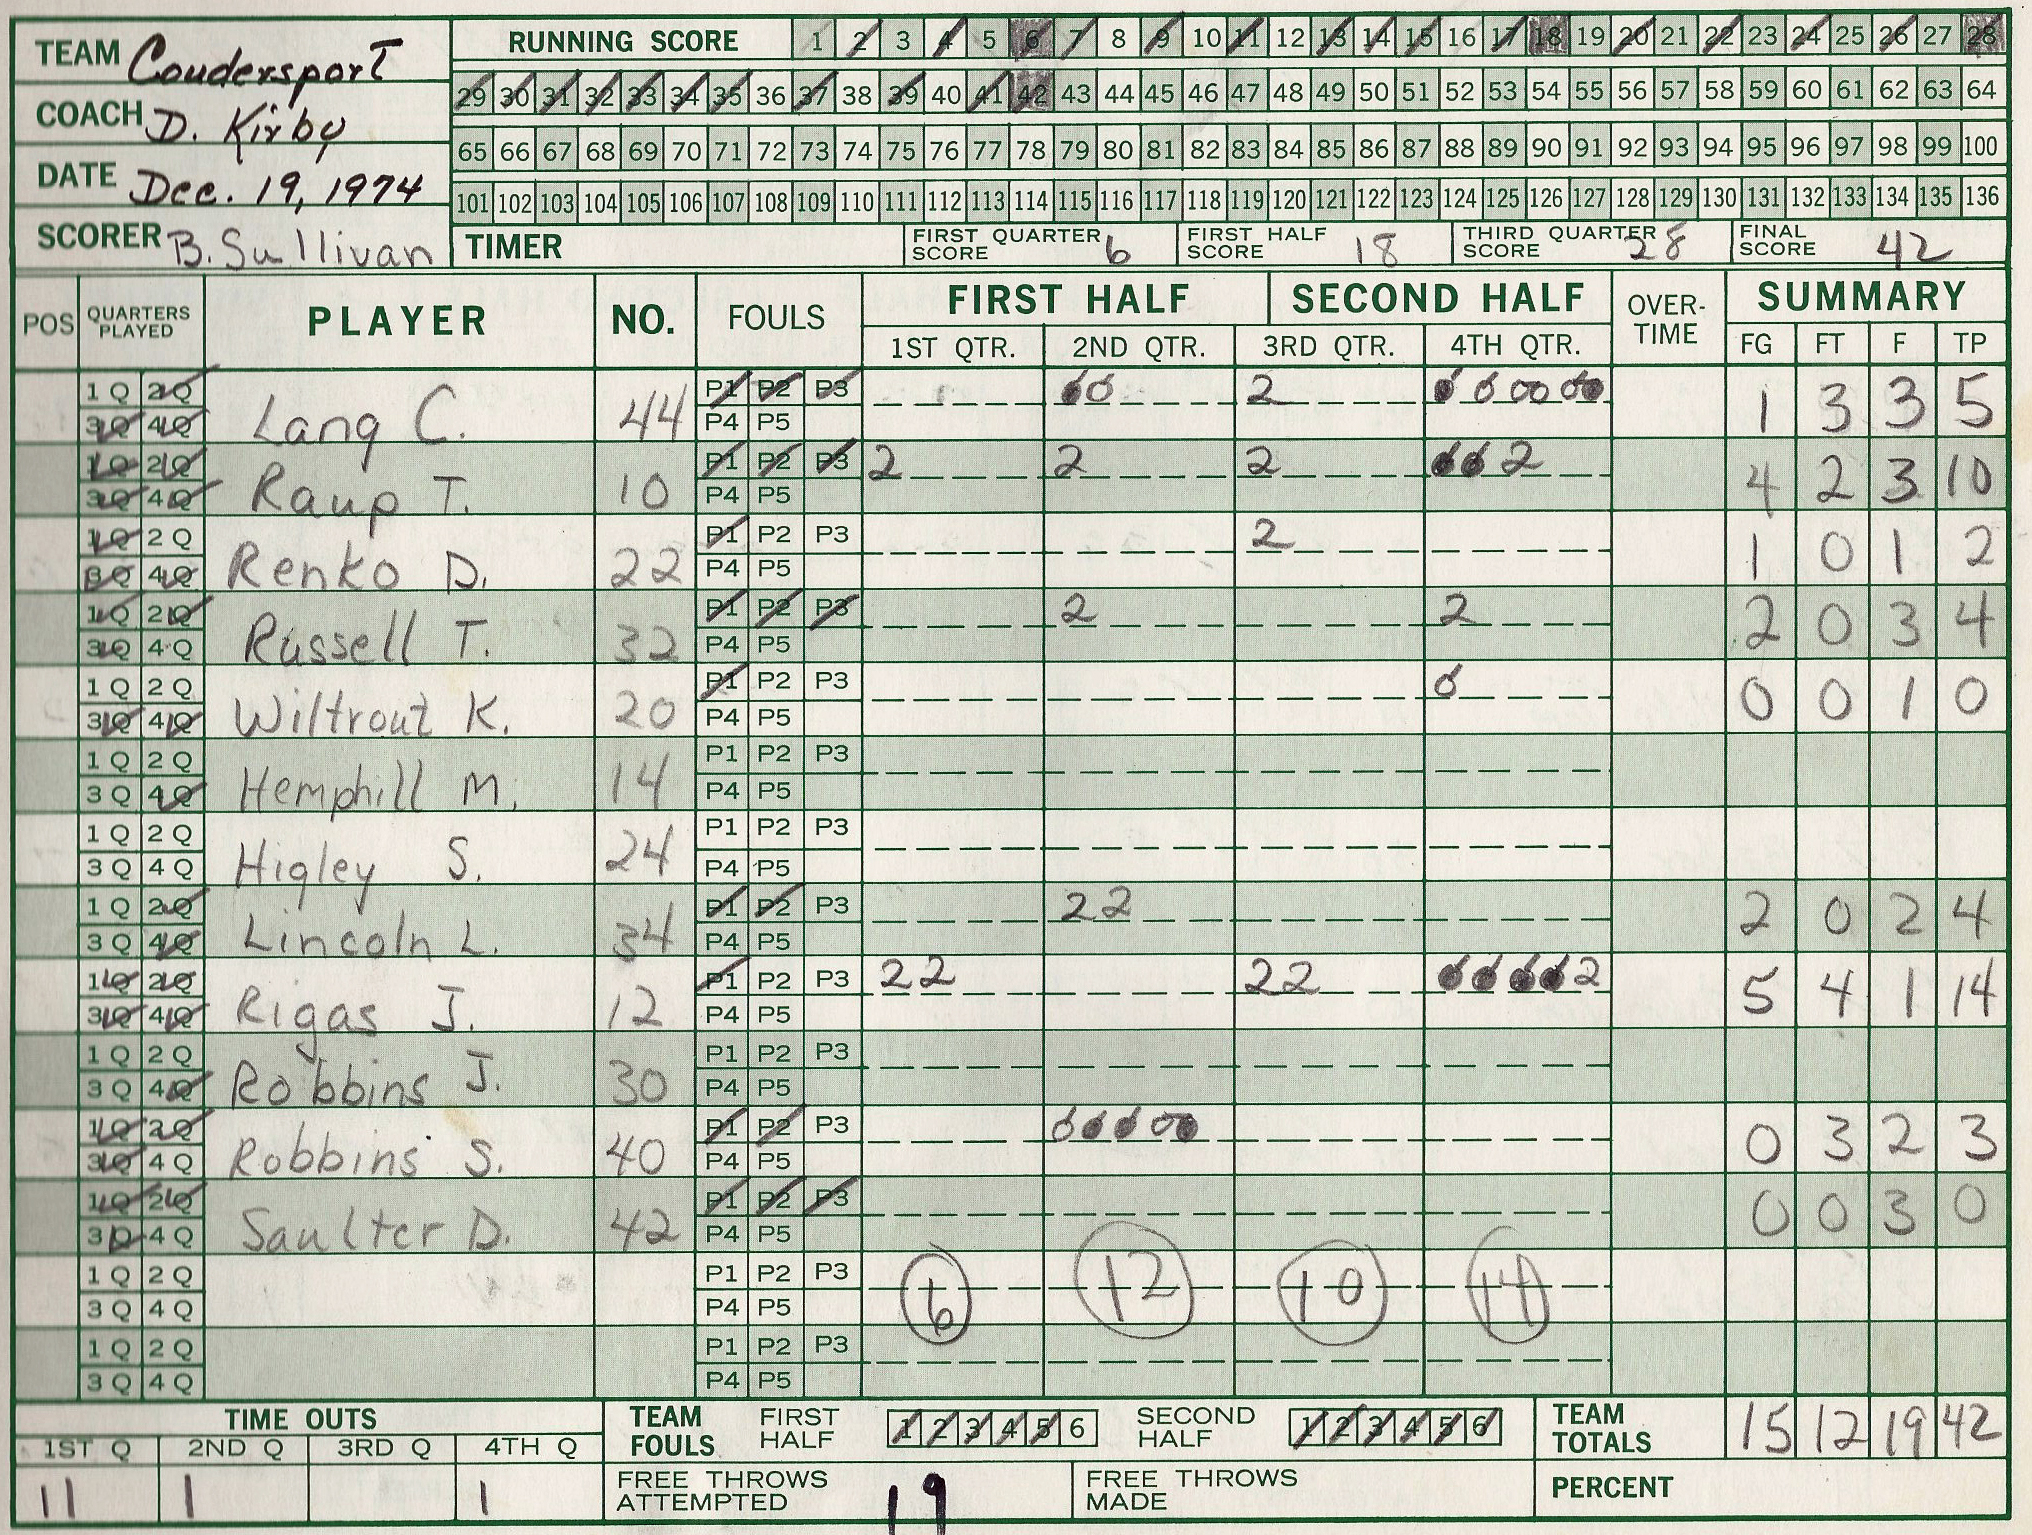 TEAM Coudersport
COACH D. Kirby
DATE Dec. 19, 1974
SCORER B. Sullivan
RUNNING SCORE 1 2 3 4 5 6 7 8 9 10 11 12 13 14 15 16 17 18 19 20 21 22 23 24 25 26 27 28
29 30 31 32 33 34 35 36 37 38 39 40 41 42 43 44 45 46 47 48 49 50 51 52 53 54 55 56 57 58 59 60 61 62 63 64
65 66 67 68 69 70 71 72 73 74 75 76 77 78 79 80 81 82 83 84 85 86 87 88 89 90 91 92 93 94 95 96 97 98 99 100
101 102 103 104 105 106 107 108 109 110 111 112 113 114 115 116 117 118 119 120 121 122 123 124 125 126 127 128 129 130 131 132 133 134 135 136
TIMER FIRST QUARTER SCORE 6 FIRST HALF SCORE 18 THIRD QUARTER SCORE 28 FINAL SCORE 42
POS QUARTERS PLAYED PLAYER NO. FOULS FIRST HALF SECOND HALF OVER-TIME SUMMARY
1ST QTR. 2ND QTR. 3RD QTR. 4TH QTR. FG FT F TP
1Q 2Q P1 P2 P3 2
3Q 4Q Lang C. 44 P4 P5 1 3 3 5
1Q 2Q P1 P2 P3 2 2 2 2
3Q 4Q Raup T. 10 P4 P5 4 2 3 10
1Q 2Q P1 P2 P3 2
3Q 4Q Renko D. 22 P4 P5 1 0 1 2
1Q 2Q P1 P2 P3 2 2
3Q 4Q Russell T. 32 P4 P5 2 0 3 4
1Q 2Q P1 P2 P3
3Q 4Q Wiltrout K. 20 P4 P5 0 0 1 0
1Q 2Q P1 P2 P3
3Q 4Q Hemphill M. 14 P4 P5
1Q 2Q P1 P2 P3
3Q 4Q Higley S. 24 P4 P5
1Q 2Q P1 P2 P3 2 2
3Q 4Q Lincoln L. 34 P4 P5 2 0 2 4
1Q 2Q P1 P2 P3 2 2 2 2 2
3Q 4Q Rigas J. 12 P4 P5 5 4 1 14
1Q 2Q P1 P2 P3
3Q 4Q Robbins J. 30 P4 P5
1Q 2Q P1 P2 P3
3Q 4Q Robbins S. 40 P4 P5 0 3 2 3
1Q 2Q P1 P2 P3
3Q 4Q Saulter D. 42 P4 P5 0 0 3 0
1Q 2Q P1 P2 P3 6 12 10 14
3Q 4Q P4 P5
1Q 2Q P1 P2 P3
3Q 4Q P4 P5
TIME OUTS TEAM FOULS FIRST HALF 1 2 3 4 5 6 SECOND HALF 1 2 3 4 5 6 TEAM TOTALS 15 12 19 42
1ST Q 2ND Q 3RD Q 4TH Q
11 1 1 FREE THROWS ATTEMPTED 19 FREE THROWS MADE PERCENT